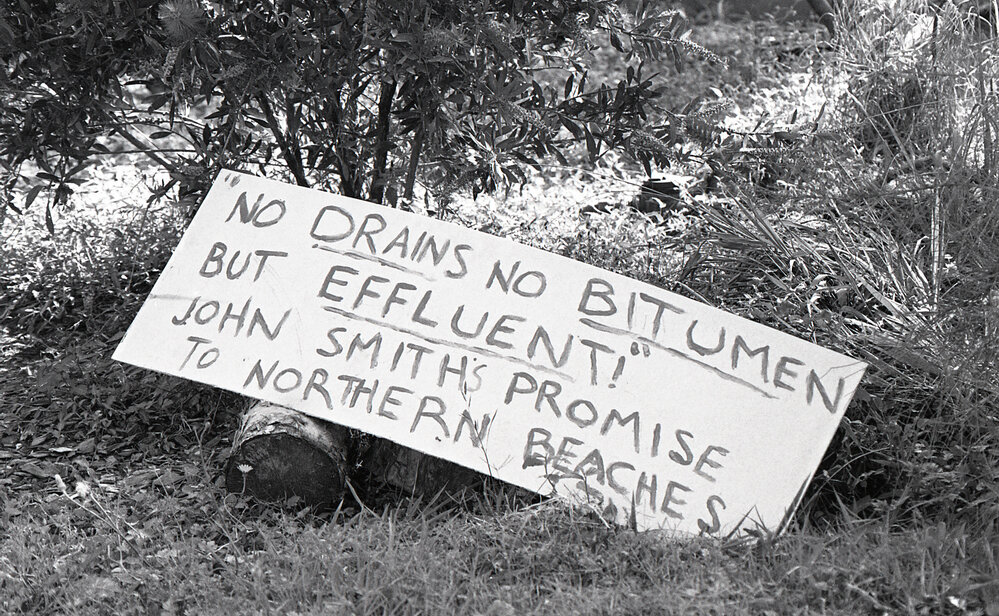 "NO DRAINS NO BITUMEN
BUT EFFLUENT!"
JOHN SMITH'S PROMISE
TO NORTHERN BEACHES